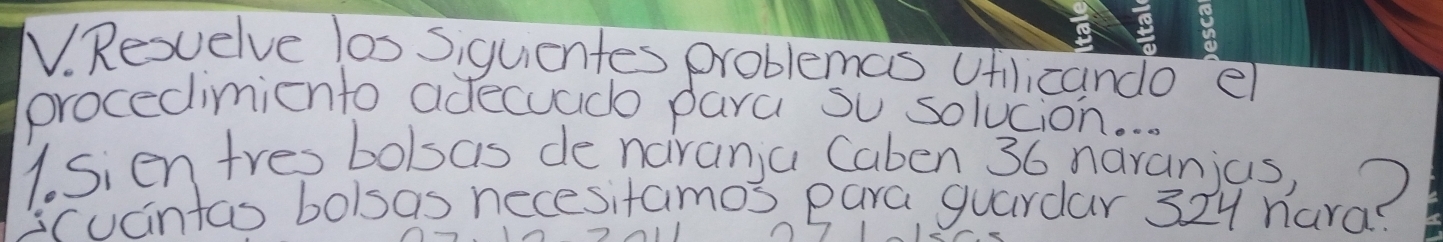 V. Resuelve los siguientes problemas utilizando el
procedimiento adecuado para su solución...
1. Si en tres bolsas de naranja caben 36 naranjas,
¿cuántas bolsas necesitamos para guardar 324 nara?
Itale
eltal
pesca